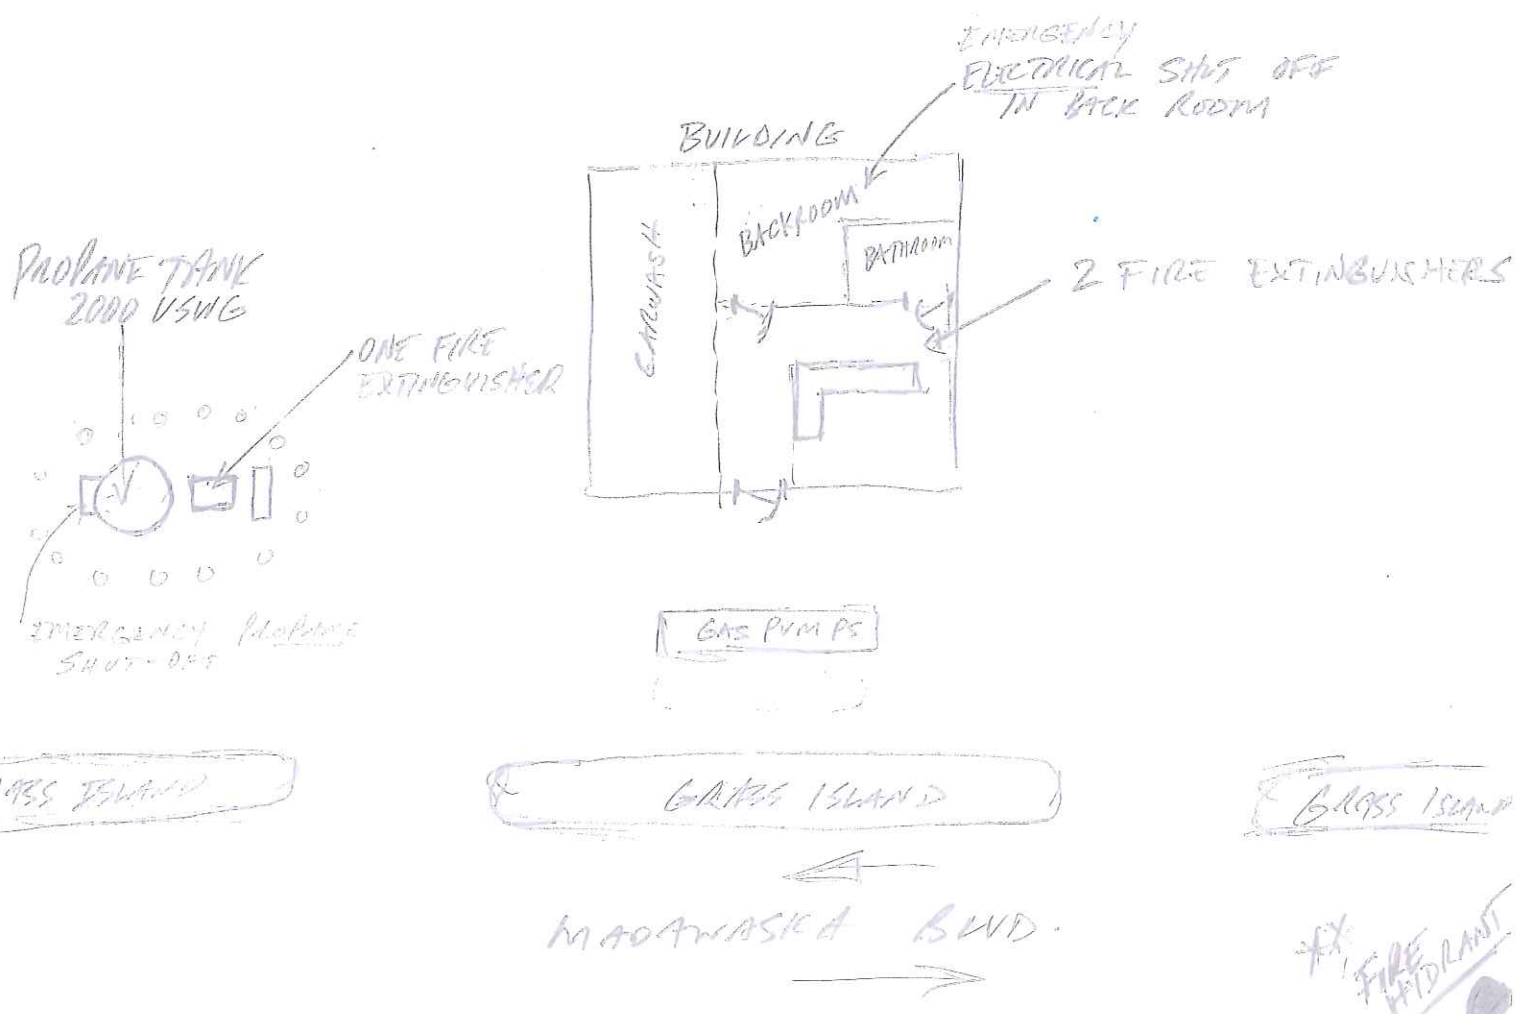 EMERGENCY
ELECTRICAL SHUT OFF
IN BACK ROOM
BUILDING
BACKROOM
BATHROOM
CARWASH
2 FIRE EXTINGUISHERS
PROPANE TANK
2000 USWG
ONE FIRE
EXTINGUISHER
EMERGENCY PROPANE
SHUT-OFF
GAS PUMPS
ASS ISLAND
GRASS ISLAND
GRASS ISLAND
MADAWASKA BLVD.
FIRE
HIDRANT